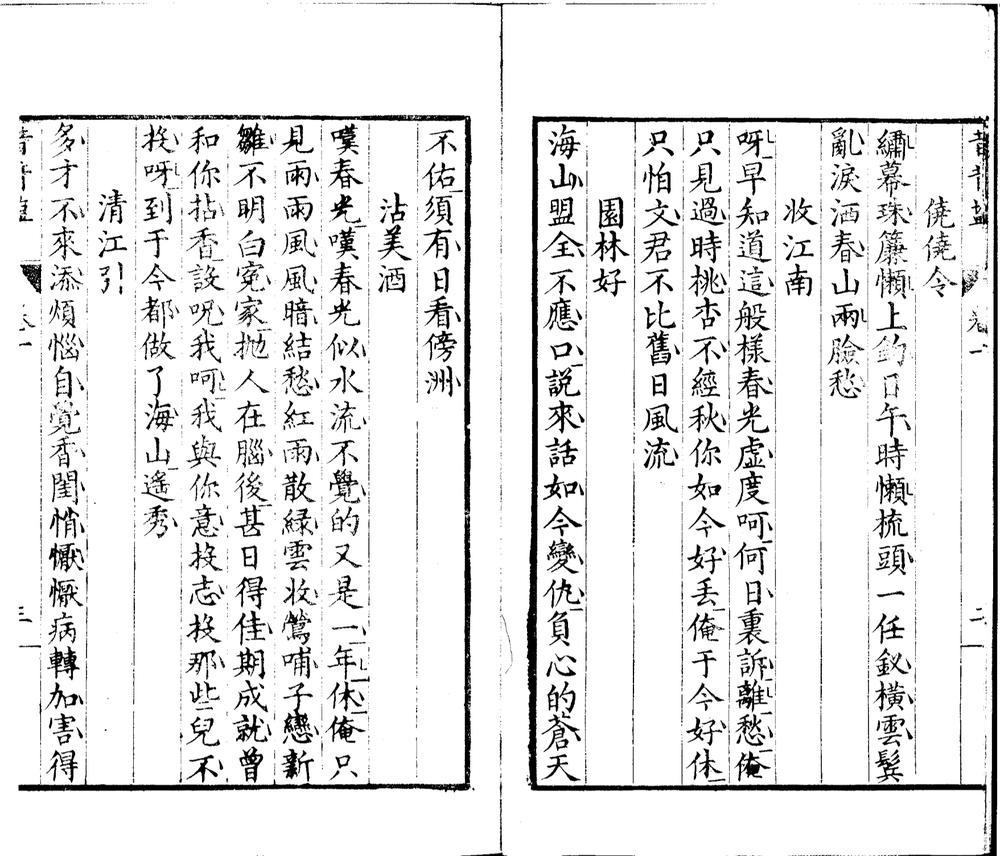 昔昔鹽 卷一 二
僥僥令
繡幕珠簾懶上鈎日午時懶梳頭一任釵橫雲鬢
亂淚洒春山兩臉愁
收江南
呀早知道這般樣春光虛度呵何日裏訴離愁俺
只見過時桃杏不經秋你如今好丟俺于今好休
只怕文君不比舊日風流
園林好
海山盟全不應口說來話如今變仇負心的蒼天
不佑須有日看傍洲
沽美酒
嘆春光嘆春光似水流不覺的又是一年休俺只
見雨雨風風暗結愁紅雨散緑雲收鶯哺子戀新
雛不明白寃家抛人在腦後甚日得佳期成就曾
和你拈香設呪我呵我與你意投志投那些兒不
投呀到于今都做了海山遙秀
清江引
多才不來添煩惱自覺香閨悄懨懨病轉加害得
昔昔鹽 卷一 三